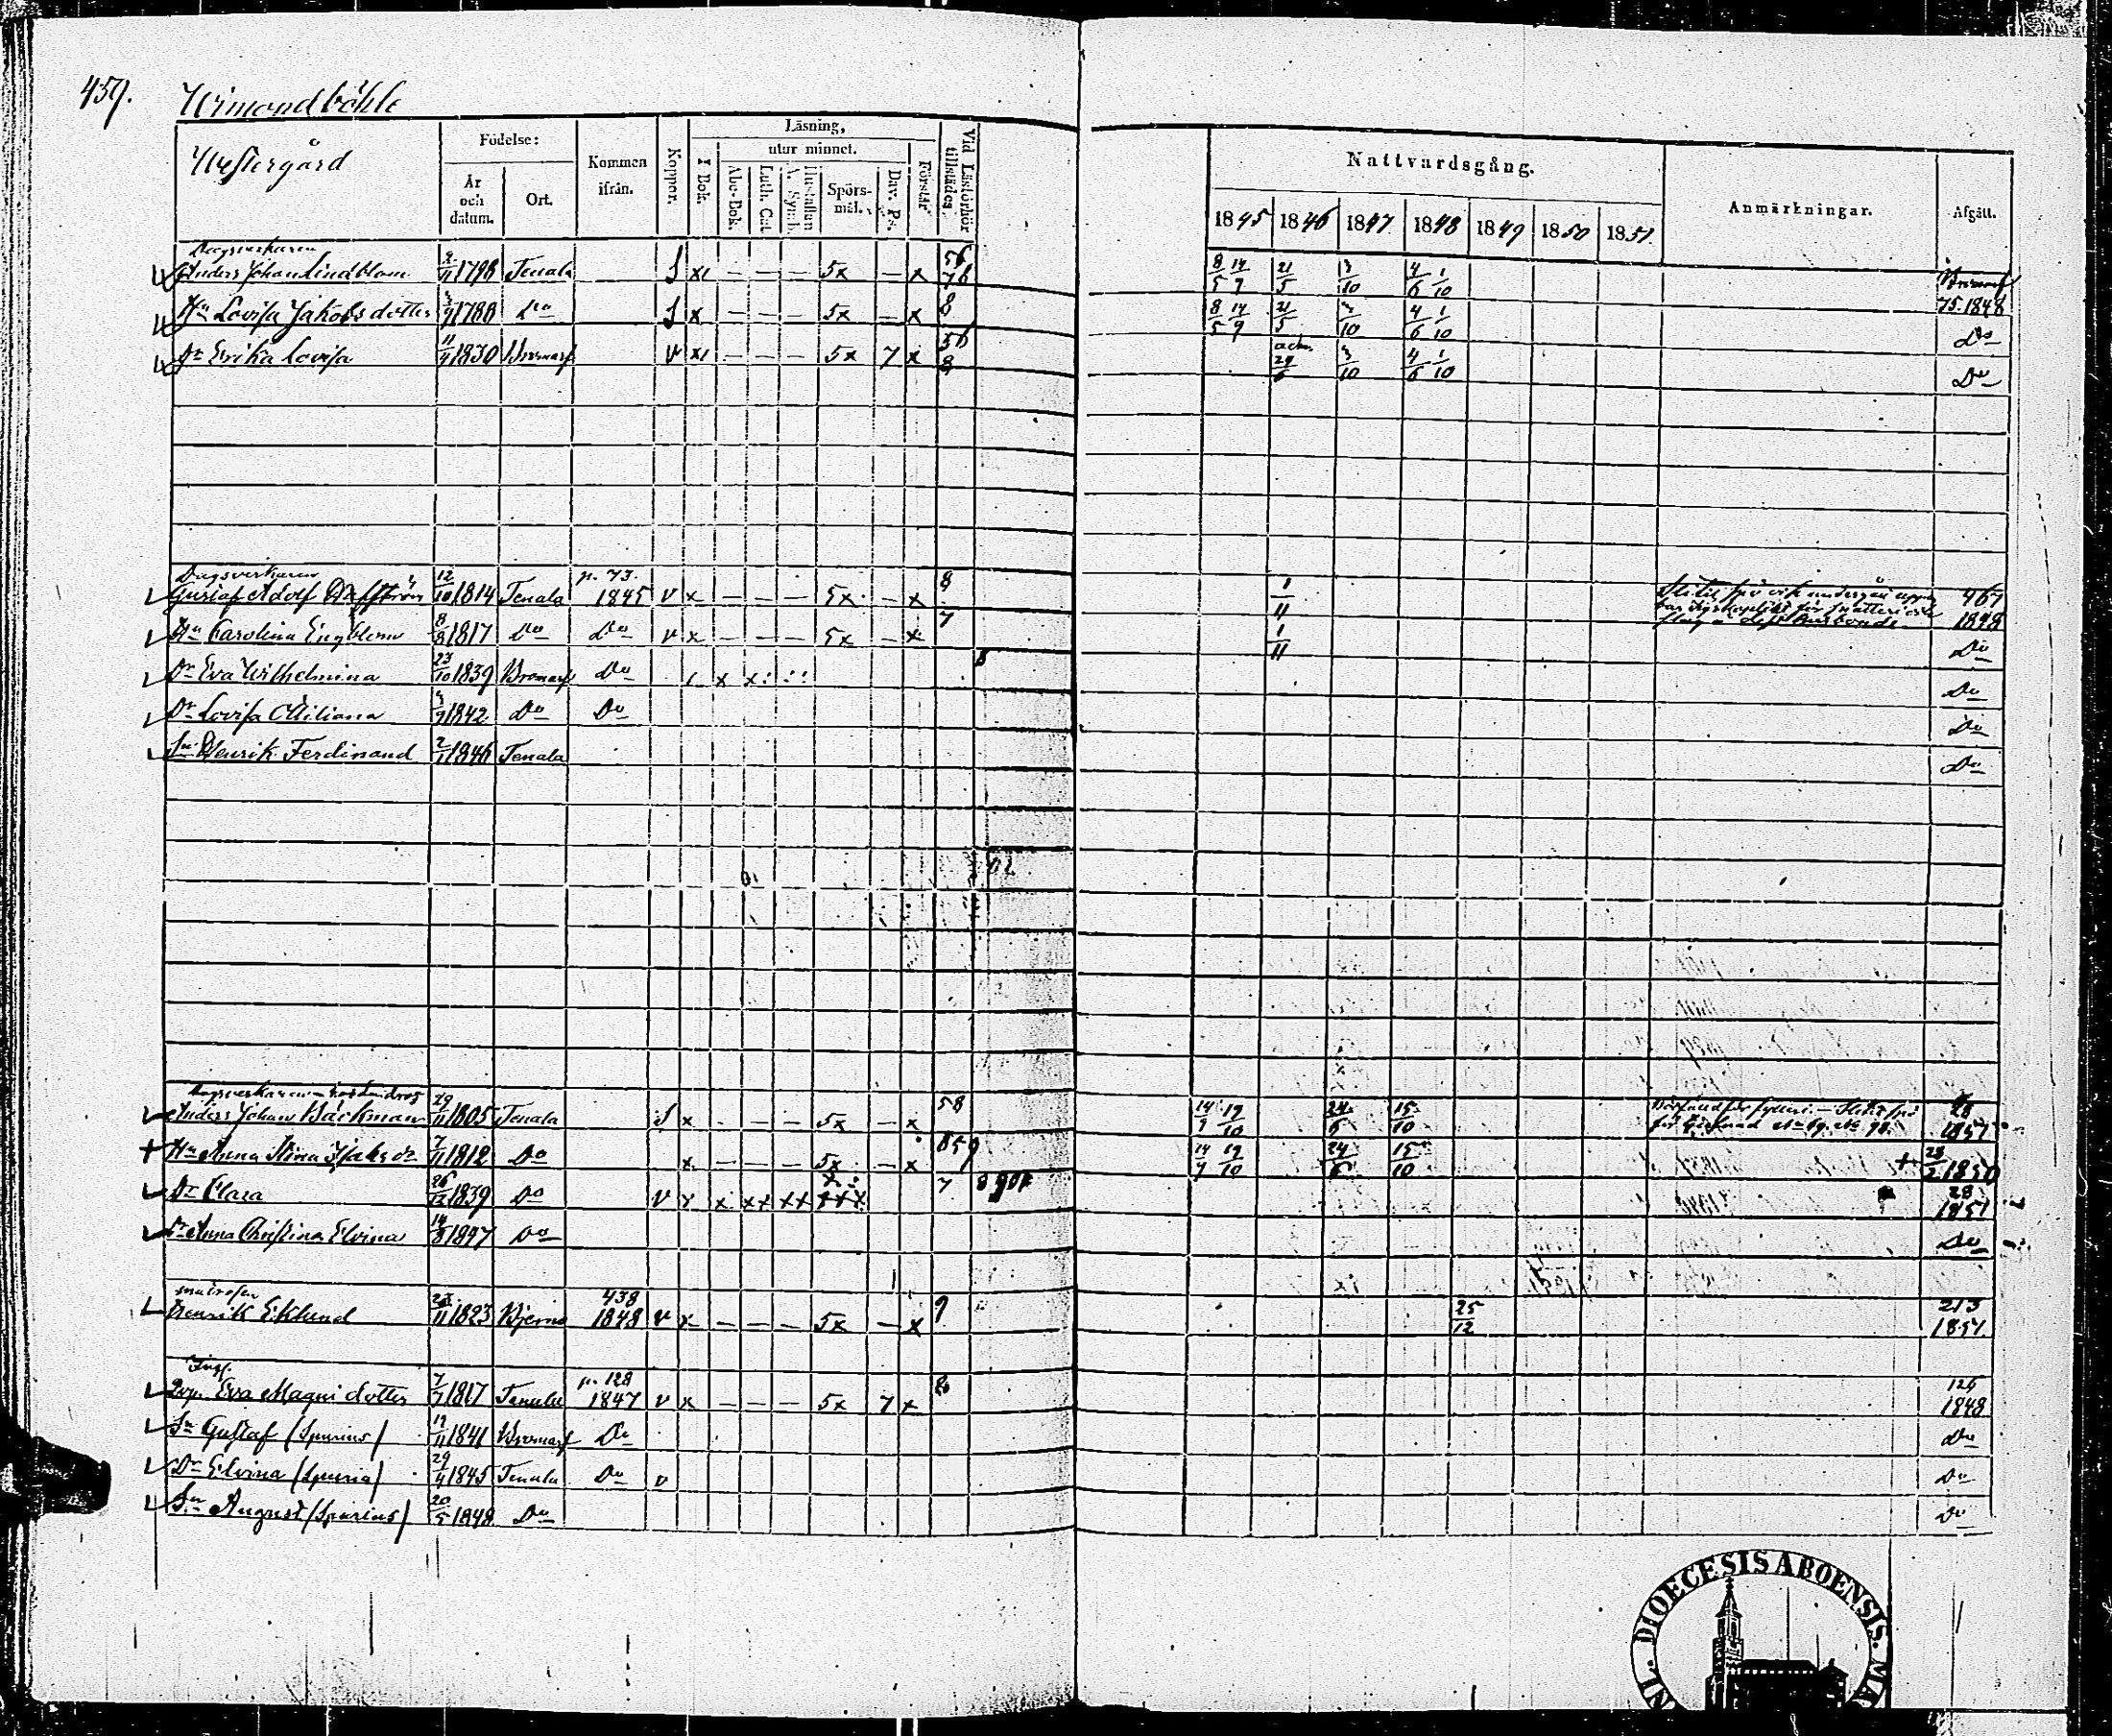 459.
Wimondböhle
Westergård
Födelse:
År och datum.
Ort.
Kommen ifrån.
Koppor.
Läsning,
I Bok.
utur minnet.
Abc-Bok.
Luth. Cat.
A. Symb.
Hustaflan
Spörsmål.
Dav. Ps.
Förstår
Vid Läsförhör tillstädes
Nattvardsgång.
1845 1846 1847 1848 1849 1850 1851
Anmärkningar.
Afgått.
Dagsverkaren
Anders Johan Lindblom 2/11 1798 Tenala S x1 – – – 5x – x 56 78 8/5 14/9 21/5 3/10 4/6 1/10 Bromarf 75. 1848
Hu Lovisa Jakobsdotter 3/9 1788 Do S x – – – 5x – x 8 8/5 14/9 21/5 3/10 4/6 1/10 Do
Dr Erika Lovisa 11/9 1830 Bromarf v x1 – – – 5x 7 x 56 8 29/6 3/10 4/6 1/10 Do
Dagsverkaren
Gustaf Adolf 12/10 1814 Tenala p. 73. 1845 v x – – – 5x – x 8 1/11 467 1848
Hu Carolina Engblom 8/8 1817 Do Do v x – – – 5x – x 7 1/11 Do
Dr Eva Wilhelmina 23/10 1839 Bromarf Do x x 8 Do
Dr Lovisa 3/9 1842 Do Do Do
Sn Henrik Ferdinand 2/1 1846 Tenala Do
Dagsverkaren
Anders Johan Bäckman 29/11 1805 Tenala S x – – – 5x – x 58 14/9 19/10 24/6 15/10 28 1851
Hu Anna Stina 7/11 1812 Do x – – – 5x – x 859 14/9 19/10 24/6 15/10 + 28/2 1850
Dr Clara 26/12 1839 Do v x x xx xx xxx 7 28 1851
Dr Anna Christina Elvina 14/8 1847 Do Do
Henrik Eklund 1823 Bjerno 438 1848 v x – – – 5x – x 9 25/12 213 1851
Eva Magni dotter 7/7 1817 Tenala p. 128 1847 v x – – – 5x 7 x 8 126 1848
Sn Gustaf (Spurius) 12/11 1841 Bromarf Do Do
Dr Elvina (Spuria) 29/4 1845 Tenala Do v Do
Sn August (Spurius) 20/5 1848 Do Do
DIOECESIS ABOENSIS.